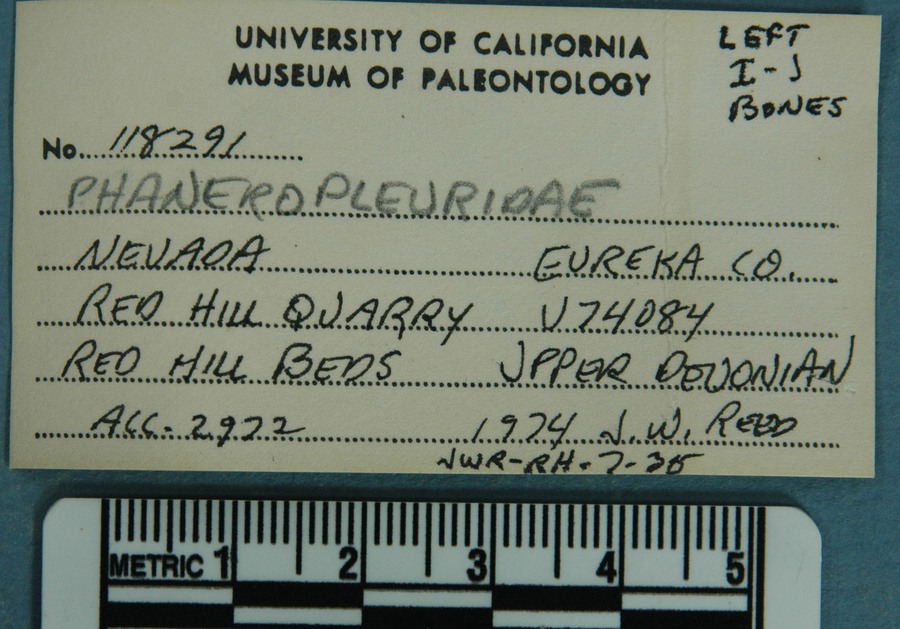 UNIVERSITY OF CALIFORNIA
MUSEUM OF PALEONTOLOGY
LEFT
I-J
BONES
No. 118291
PHANEROPLEURIDAE
NEVADA EUREKA CO.
RED HILL QUARRY V74084
RED HILL BEDS UPPER DEVONIAN
ACC. 2972 1974 J.W. REED
JWR-RH-7-35
METRIC 1 2 3 4 5